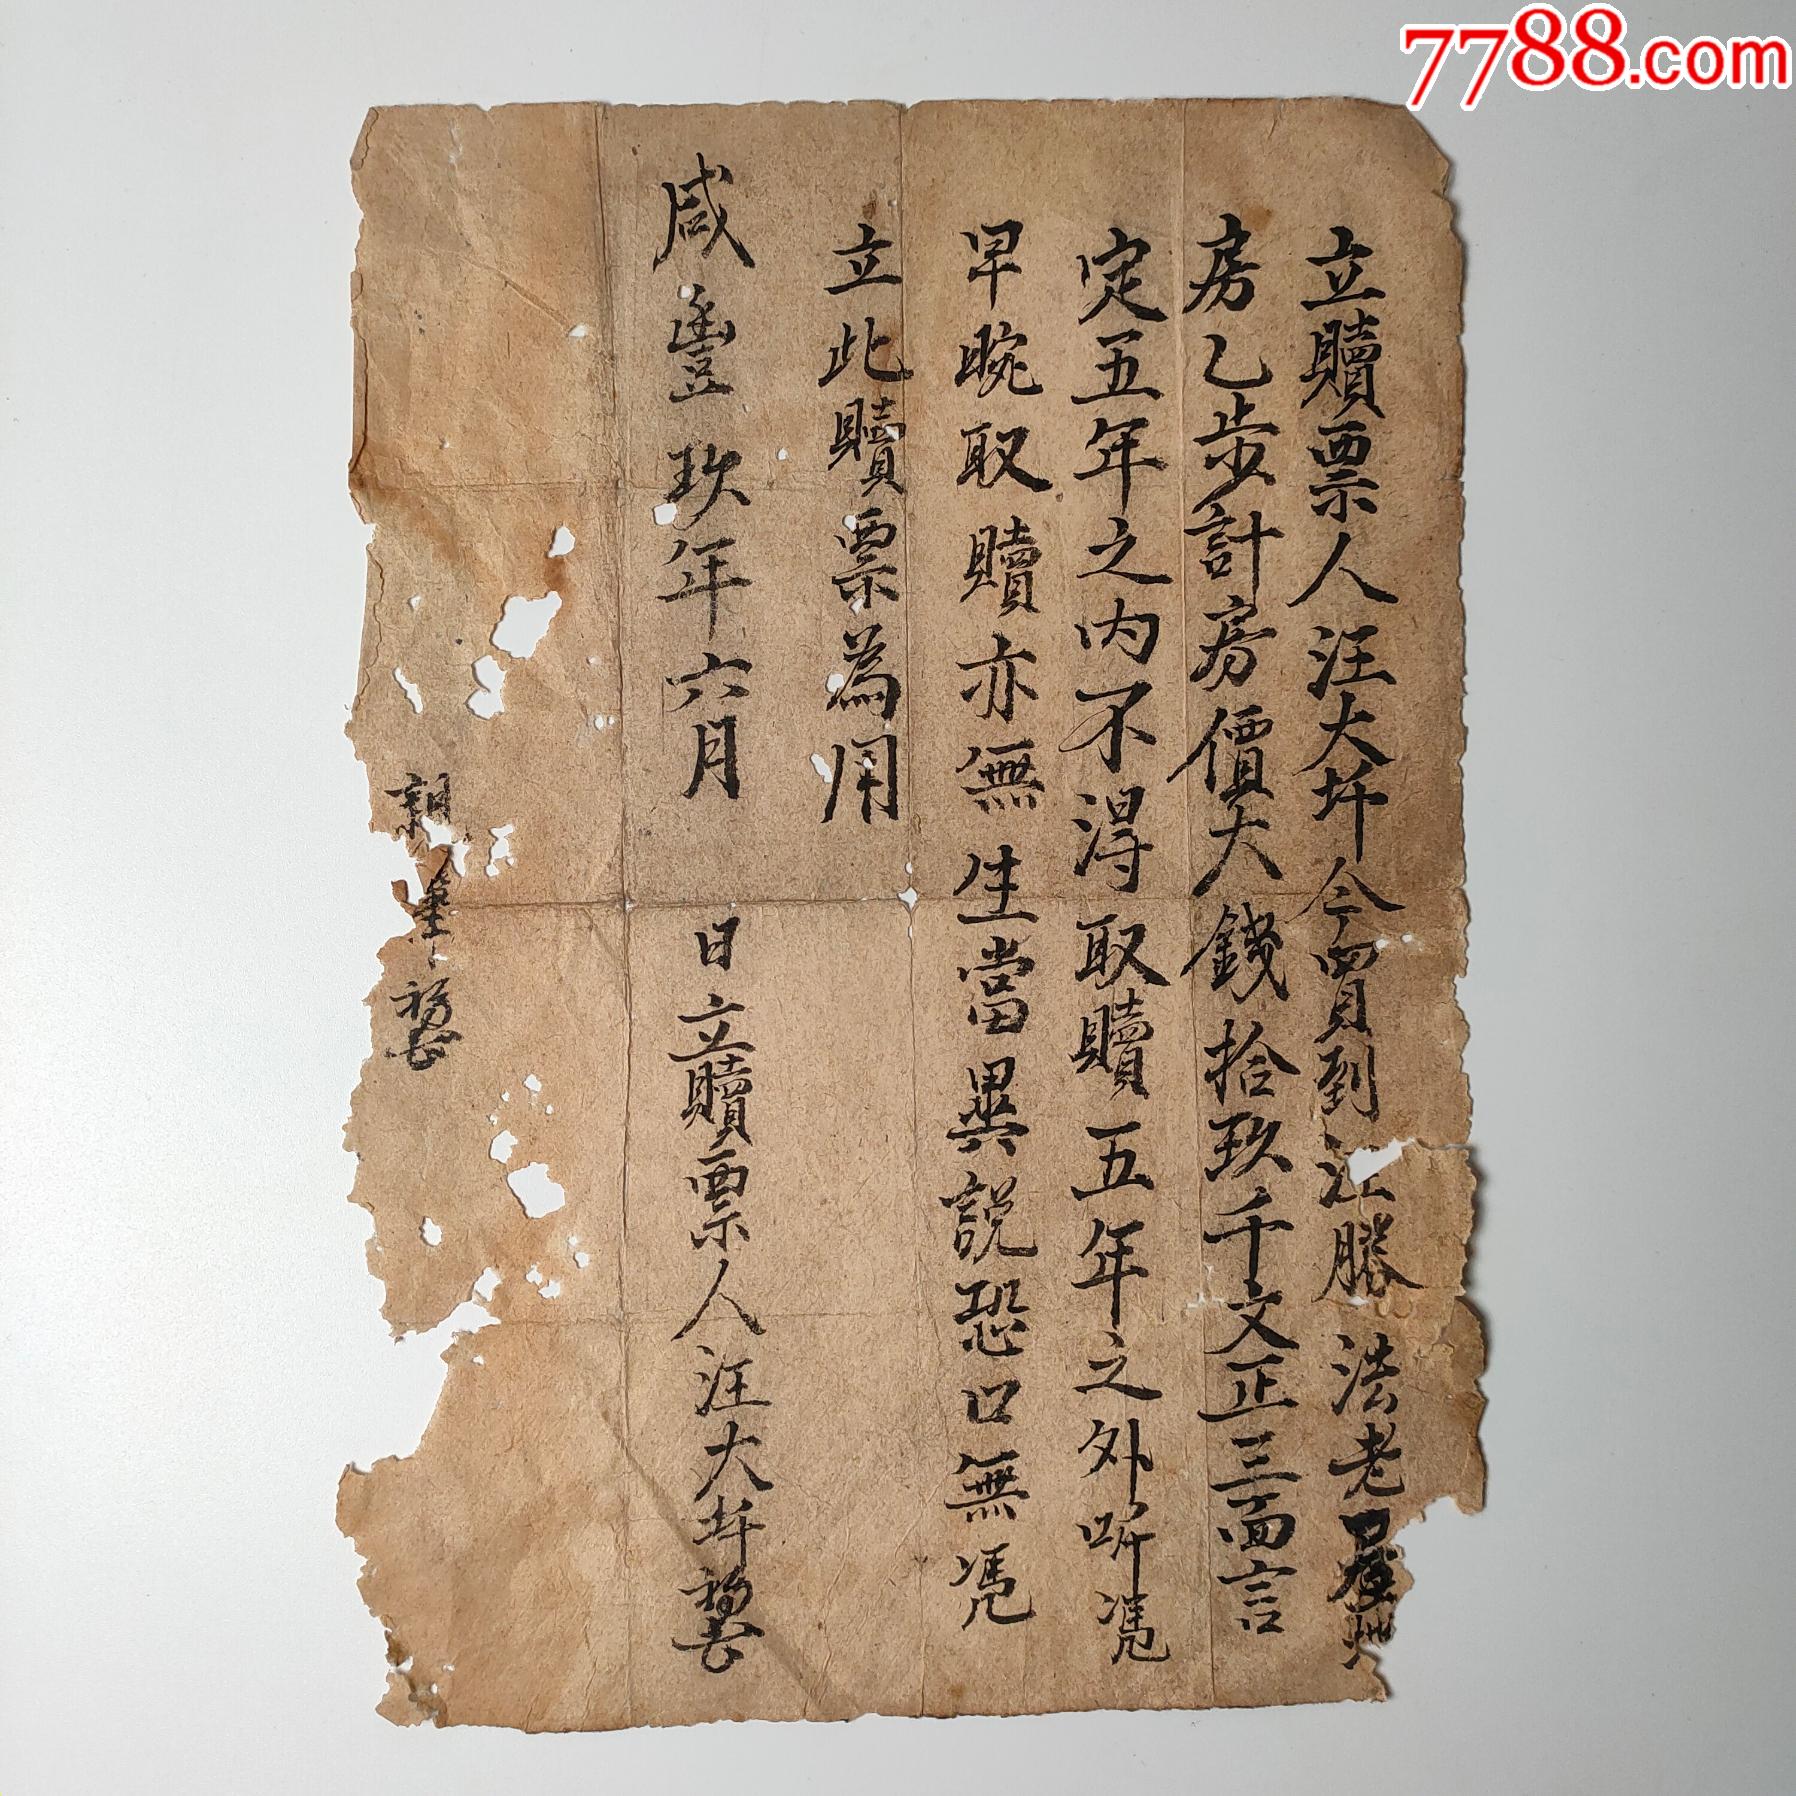 7788.com
立贖票人汪大圲今買到江勝法老屋地
房乙步計房價大錢拾玖千文正三面言
定五年之内不淂取贖五年之外听凴
早晼取贖亦無生當異説恐口無凴
立此贖票為用
咸豐玖年六月日立贖票人汪大圲
親筆